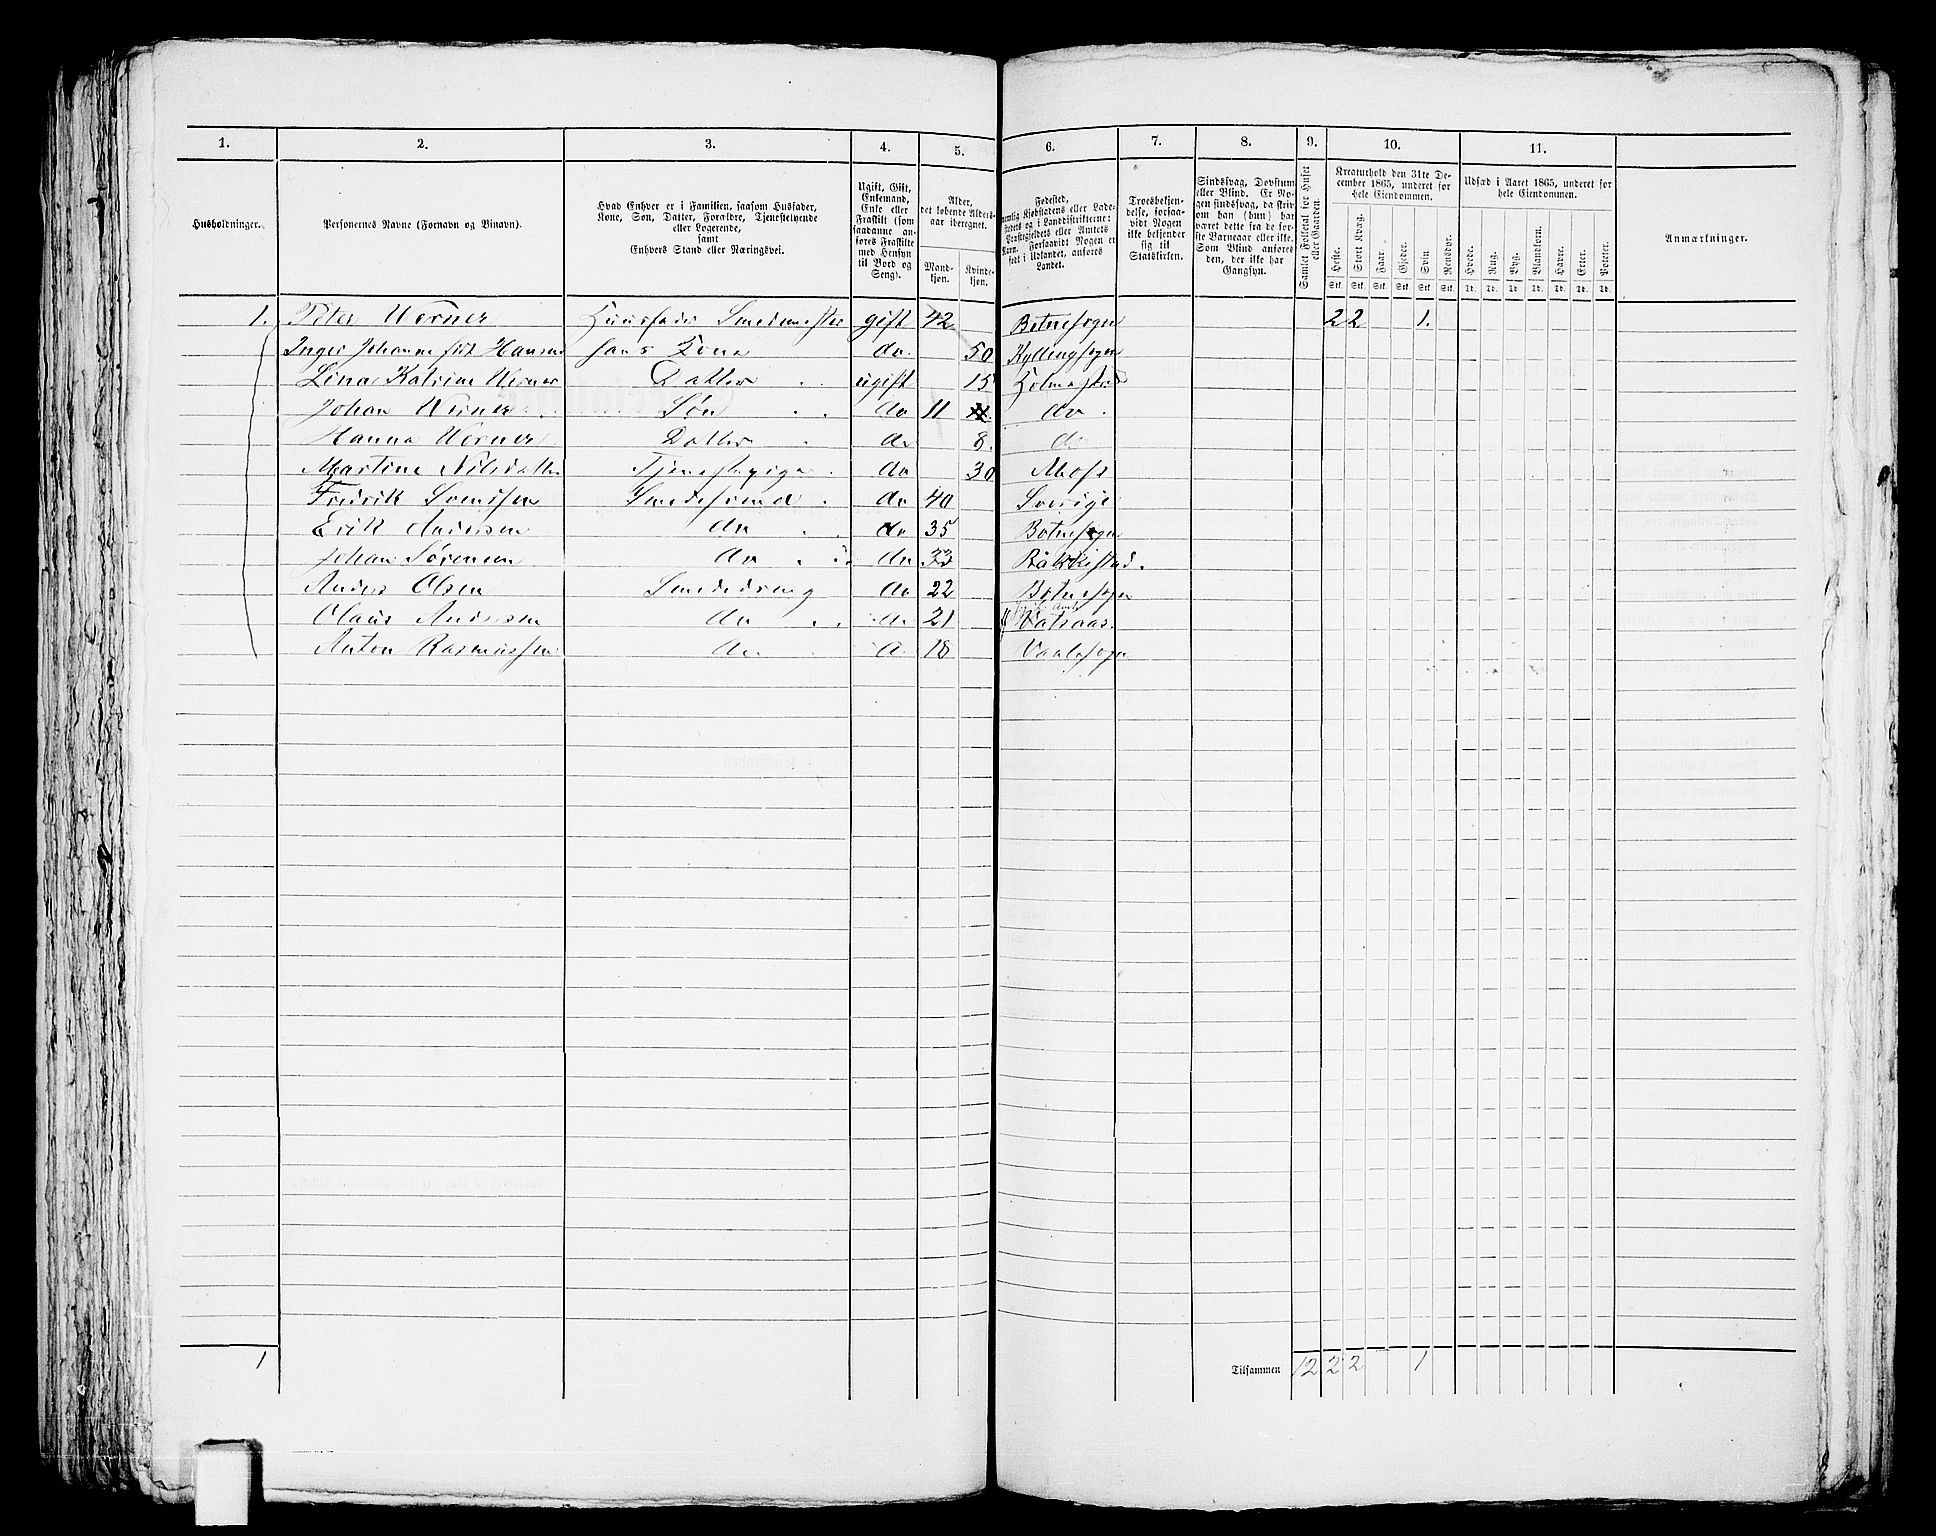 1. 2. 3. 4. 5. 6. 7. 8. 9. 10. 11.
Husholdninger.
Personernes Navne (Fornavn og Binavn).
Hvad Enhver er i Familien, saasom Husfader,
Kone, Søn, Datter, Forældre, Tjenestetyende
eller Logerende,
samt
Enhvers Stand eller Næringsvei.
Ugift, Gift,
Enkemand,
Enke eller
Fraskilt (som
saadanne an-
føres Fraskilte
med Hensyn
til Bord og
Seng).
Alder,
det løbende Alders-
aar iberegnet.
Mand-
kjøn.
Kvinde-
kjøn.
Fødested,
nemlig Kjøbstadens eller Lade-
stedets og i Landdistrikterne:
Præstegjeldets eller Amtets
Navn. Forsaavidt Nogen er
født i Udlandet, anføres
Landet.
Troesbekjen-
delse, forsaa-
vidt Nogen
ikke bekjender
sig til
Statskirken.
Sindssvag, Døvstum
eller Blind. Er No-
gen sindssvag, da skriv
om han (hun) har
været dette fra de før-
ste Barneaar eller ikke.
Som Blind anføres
den, der ikke har
Gangsyn.
Samlet Folketal for Huset
eller Gaarden.
Kreaturhold den 31te De-
cember 1865, underet for
hele Eiendommen.
Heste. Stort Kvæg. Faar. Gjeder. Svin. Rensdyr.
Stk. Stk. Stk. Stk. Stk. Stk.
Udsæd i Aaret 1865, underet for
hele Eiendommen.
Hvede. Rug. Byg. Blandkorn. Havre. Erter. Poteter.
Td. Td. Td. Td. Td. Td. Td.
Anmærkninger.
1. Peter Werner Huusfader Smedemester gift 42 Botnesogn 2 2 1.
Inger Johanne født Hansen hans Kone do. 50
Lina Katrine Werner Datter ugift 15 Holmestrand
Johan Werner Søn do 11 do.
Hanna Werner Datter do 8. do
Martine Nilsdatter Tjenestepige do 30 Moss
Fredrik Svendsen Smedesvend do 40 Sverige
Erik Andersen do do 35 Botnesogn
Johan Sørensen do do 33
Anders Olsen Smededreng do 22 Botnesogn
Olaus Andersen do do 21
Anton Rasmussen do d 18 Vaalesogn
1 Tilsammen 12 2 2 1